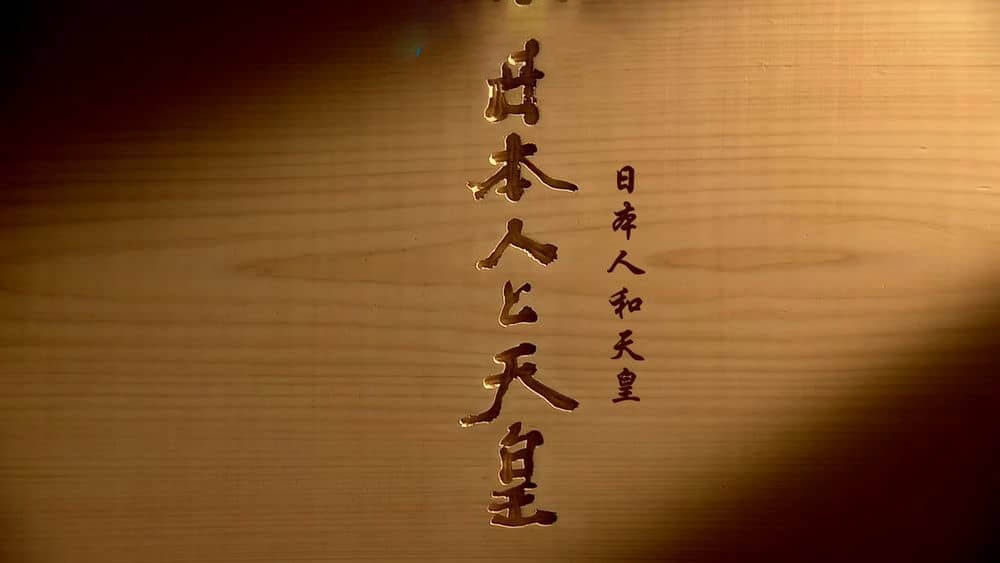 日本人と天皇
日本人和天皇